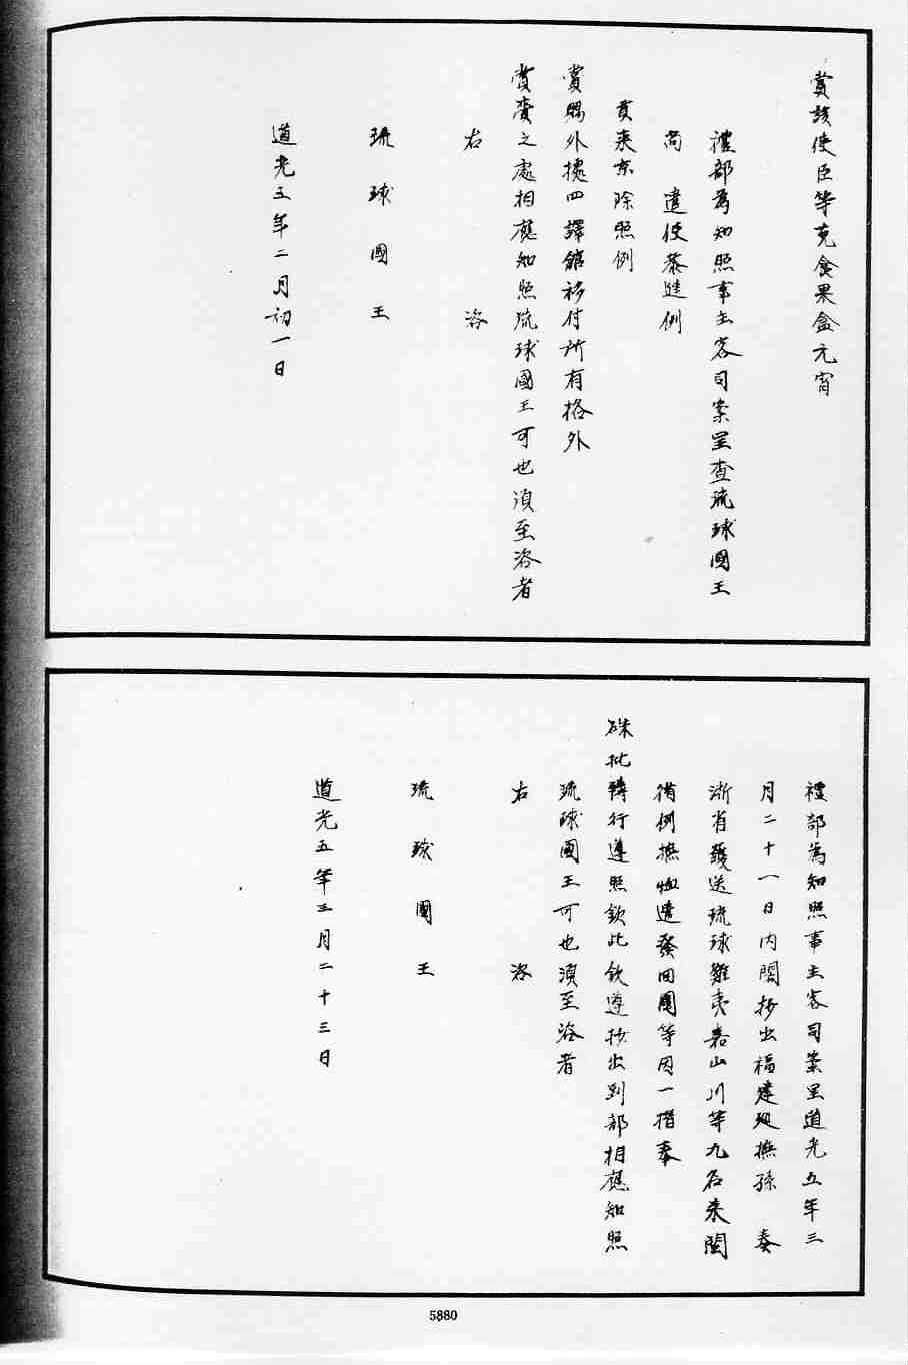 賞該使臣等克食果盒元宵
禮部為知照事主客司案呈查琉球國王
尚 遣使恭進例
貢來京除照例
賞賜外據四譯館移付所有格外
賞賚之處相應知照琉球國王可也須至咨者
右 咨
琉球國王
道光五年二月初一日
禮部為知照事主客司案呈道光五年三
月二十一日內閣抄出福建廵撫孫 奏
浙省發送琉球難夷嘉山川等九名來閩
循例撫恤遣發回國等因一摺奉
硃批轉行遵照欽此欽遵抄出到部相應知照
琉球國王可也須至咨者
右 咨
琉球國王
道光五年三月二十三日
5880